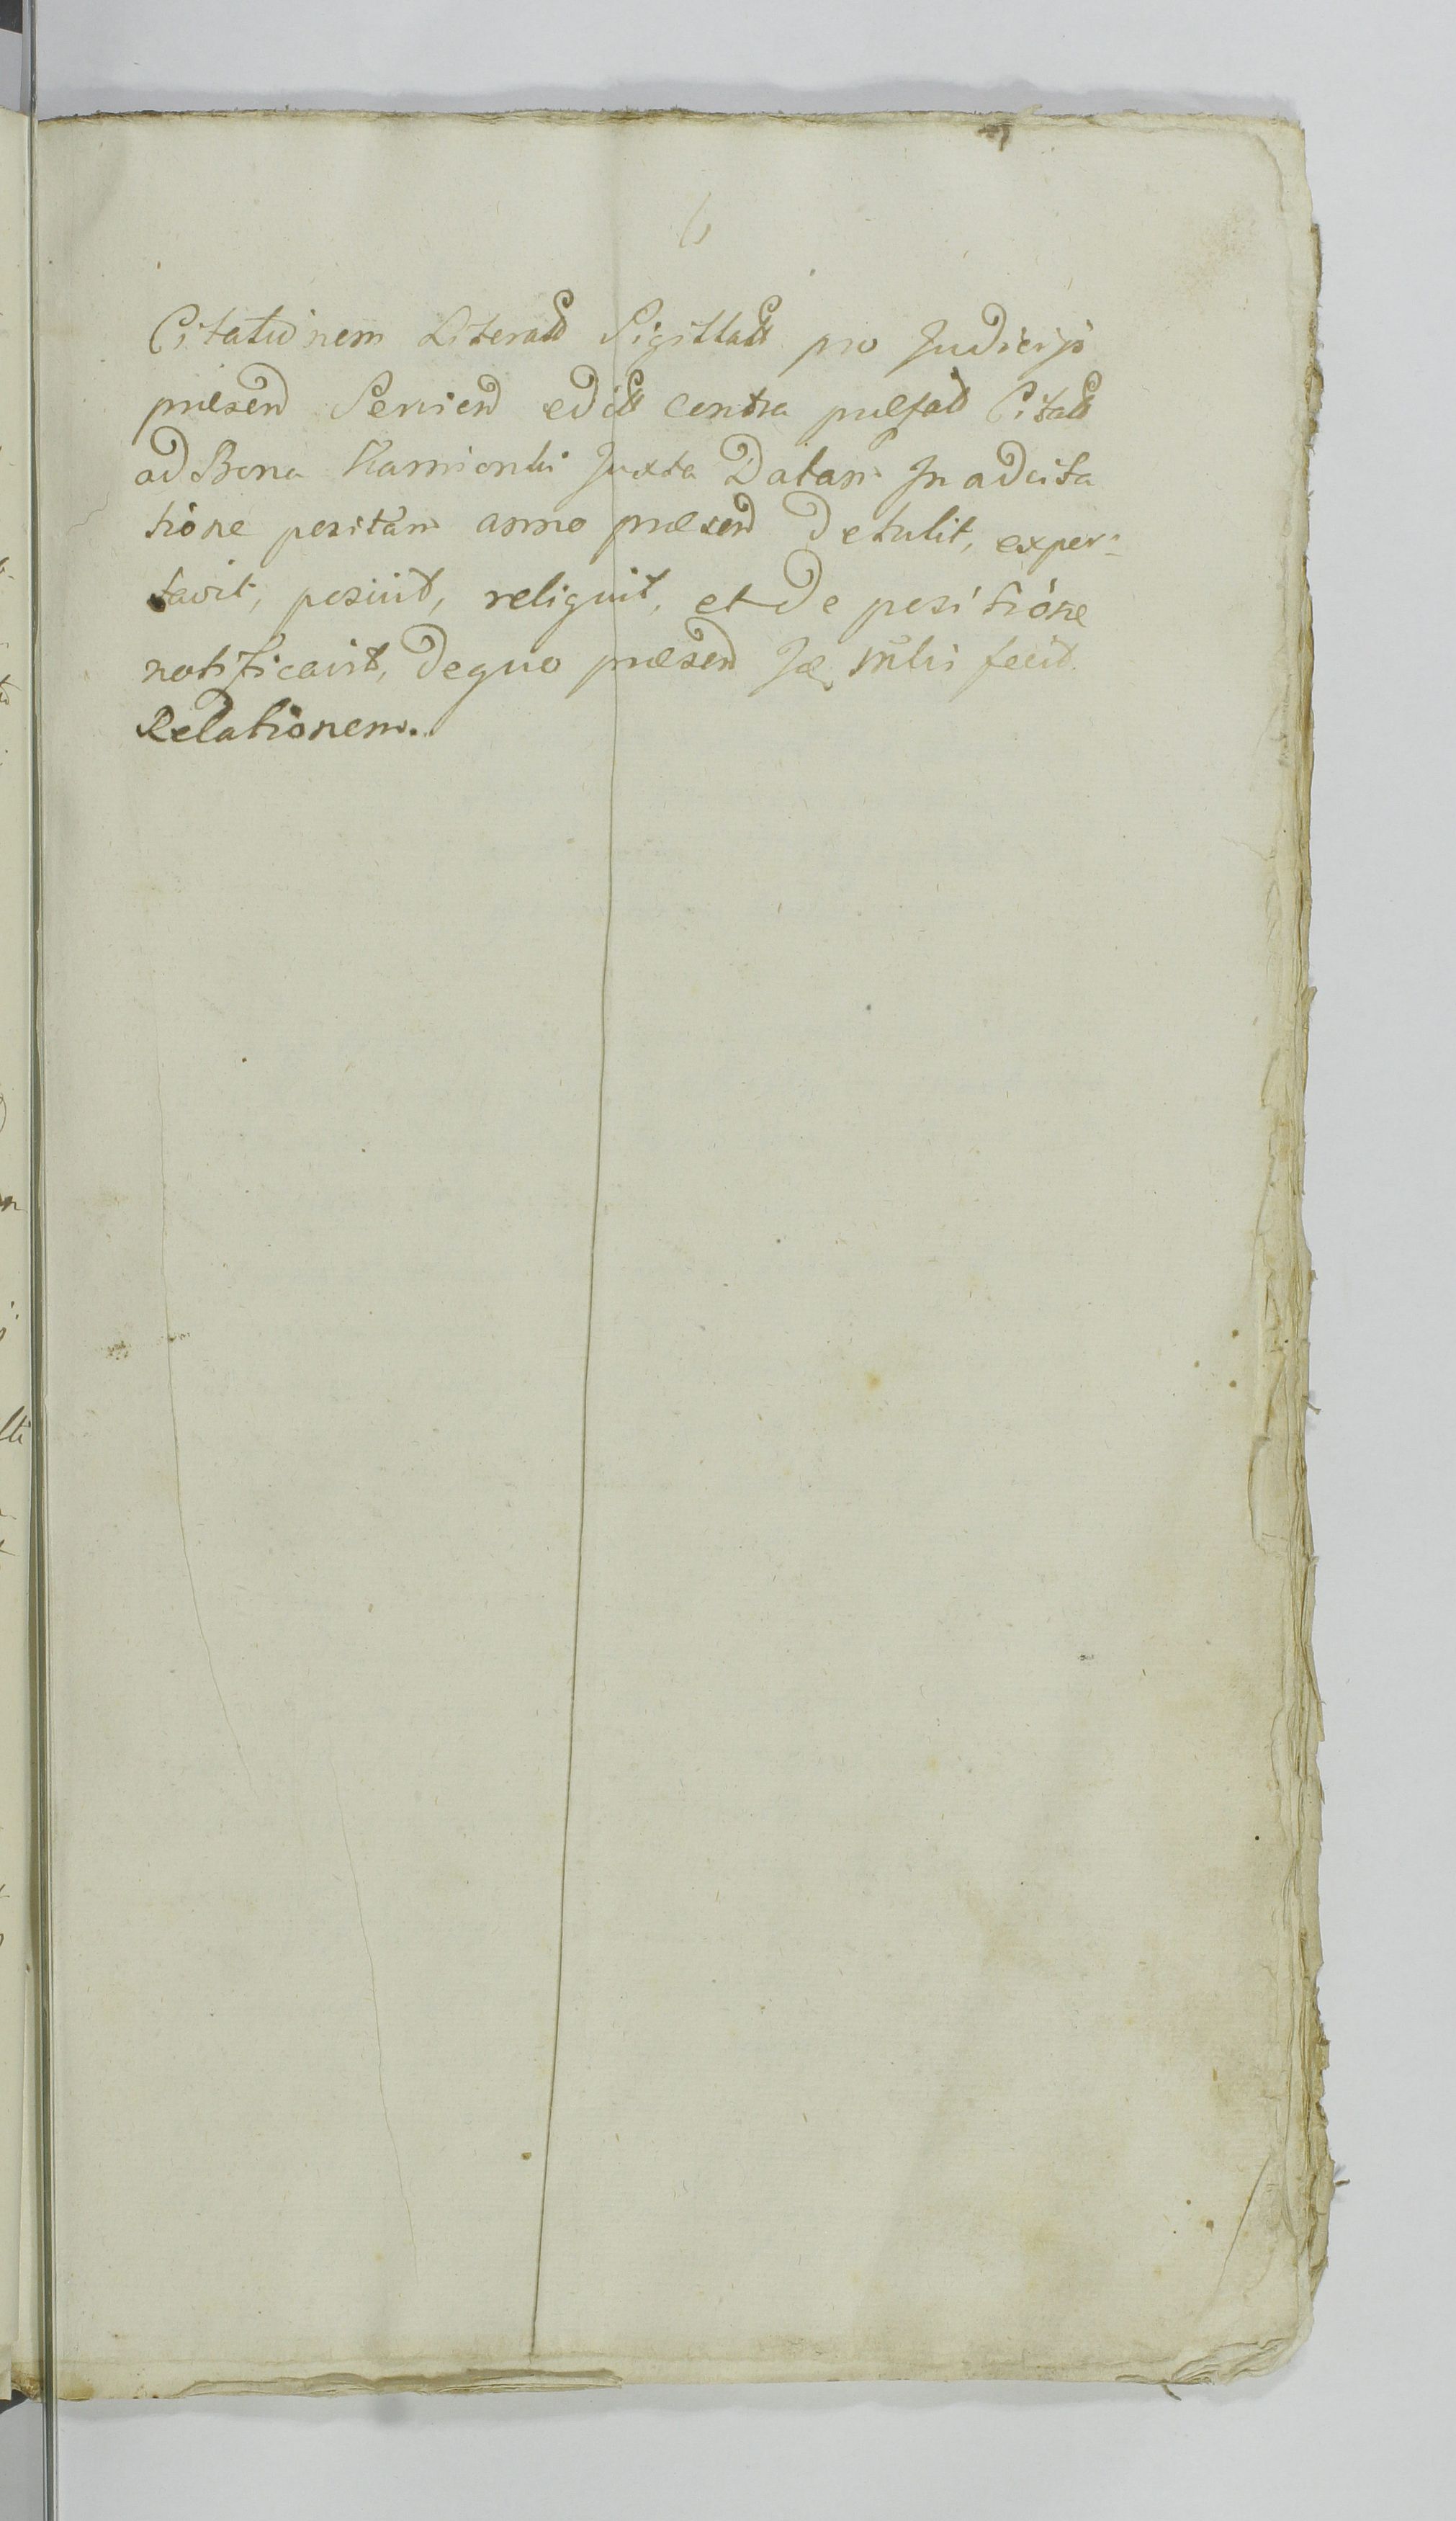 6
Citationem Literad Sigillatt pro Judicijs
præsend Serviend edict contra præfatt Citatt
ad Bona Kamionki Juxta Datam In adcita
tióne positam anno præsend detulit, expor-
tavit, posuit, reliquit, et de positióne
notificavit, de quo præsend mihi fecit
Relationem.